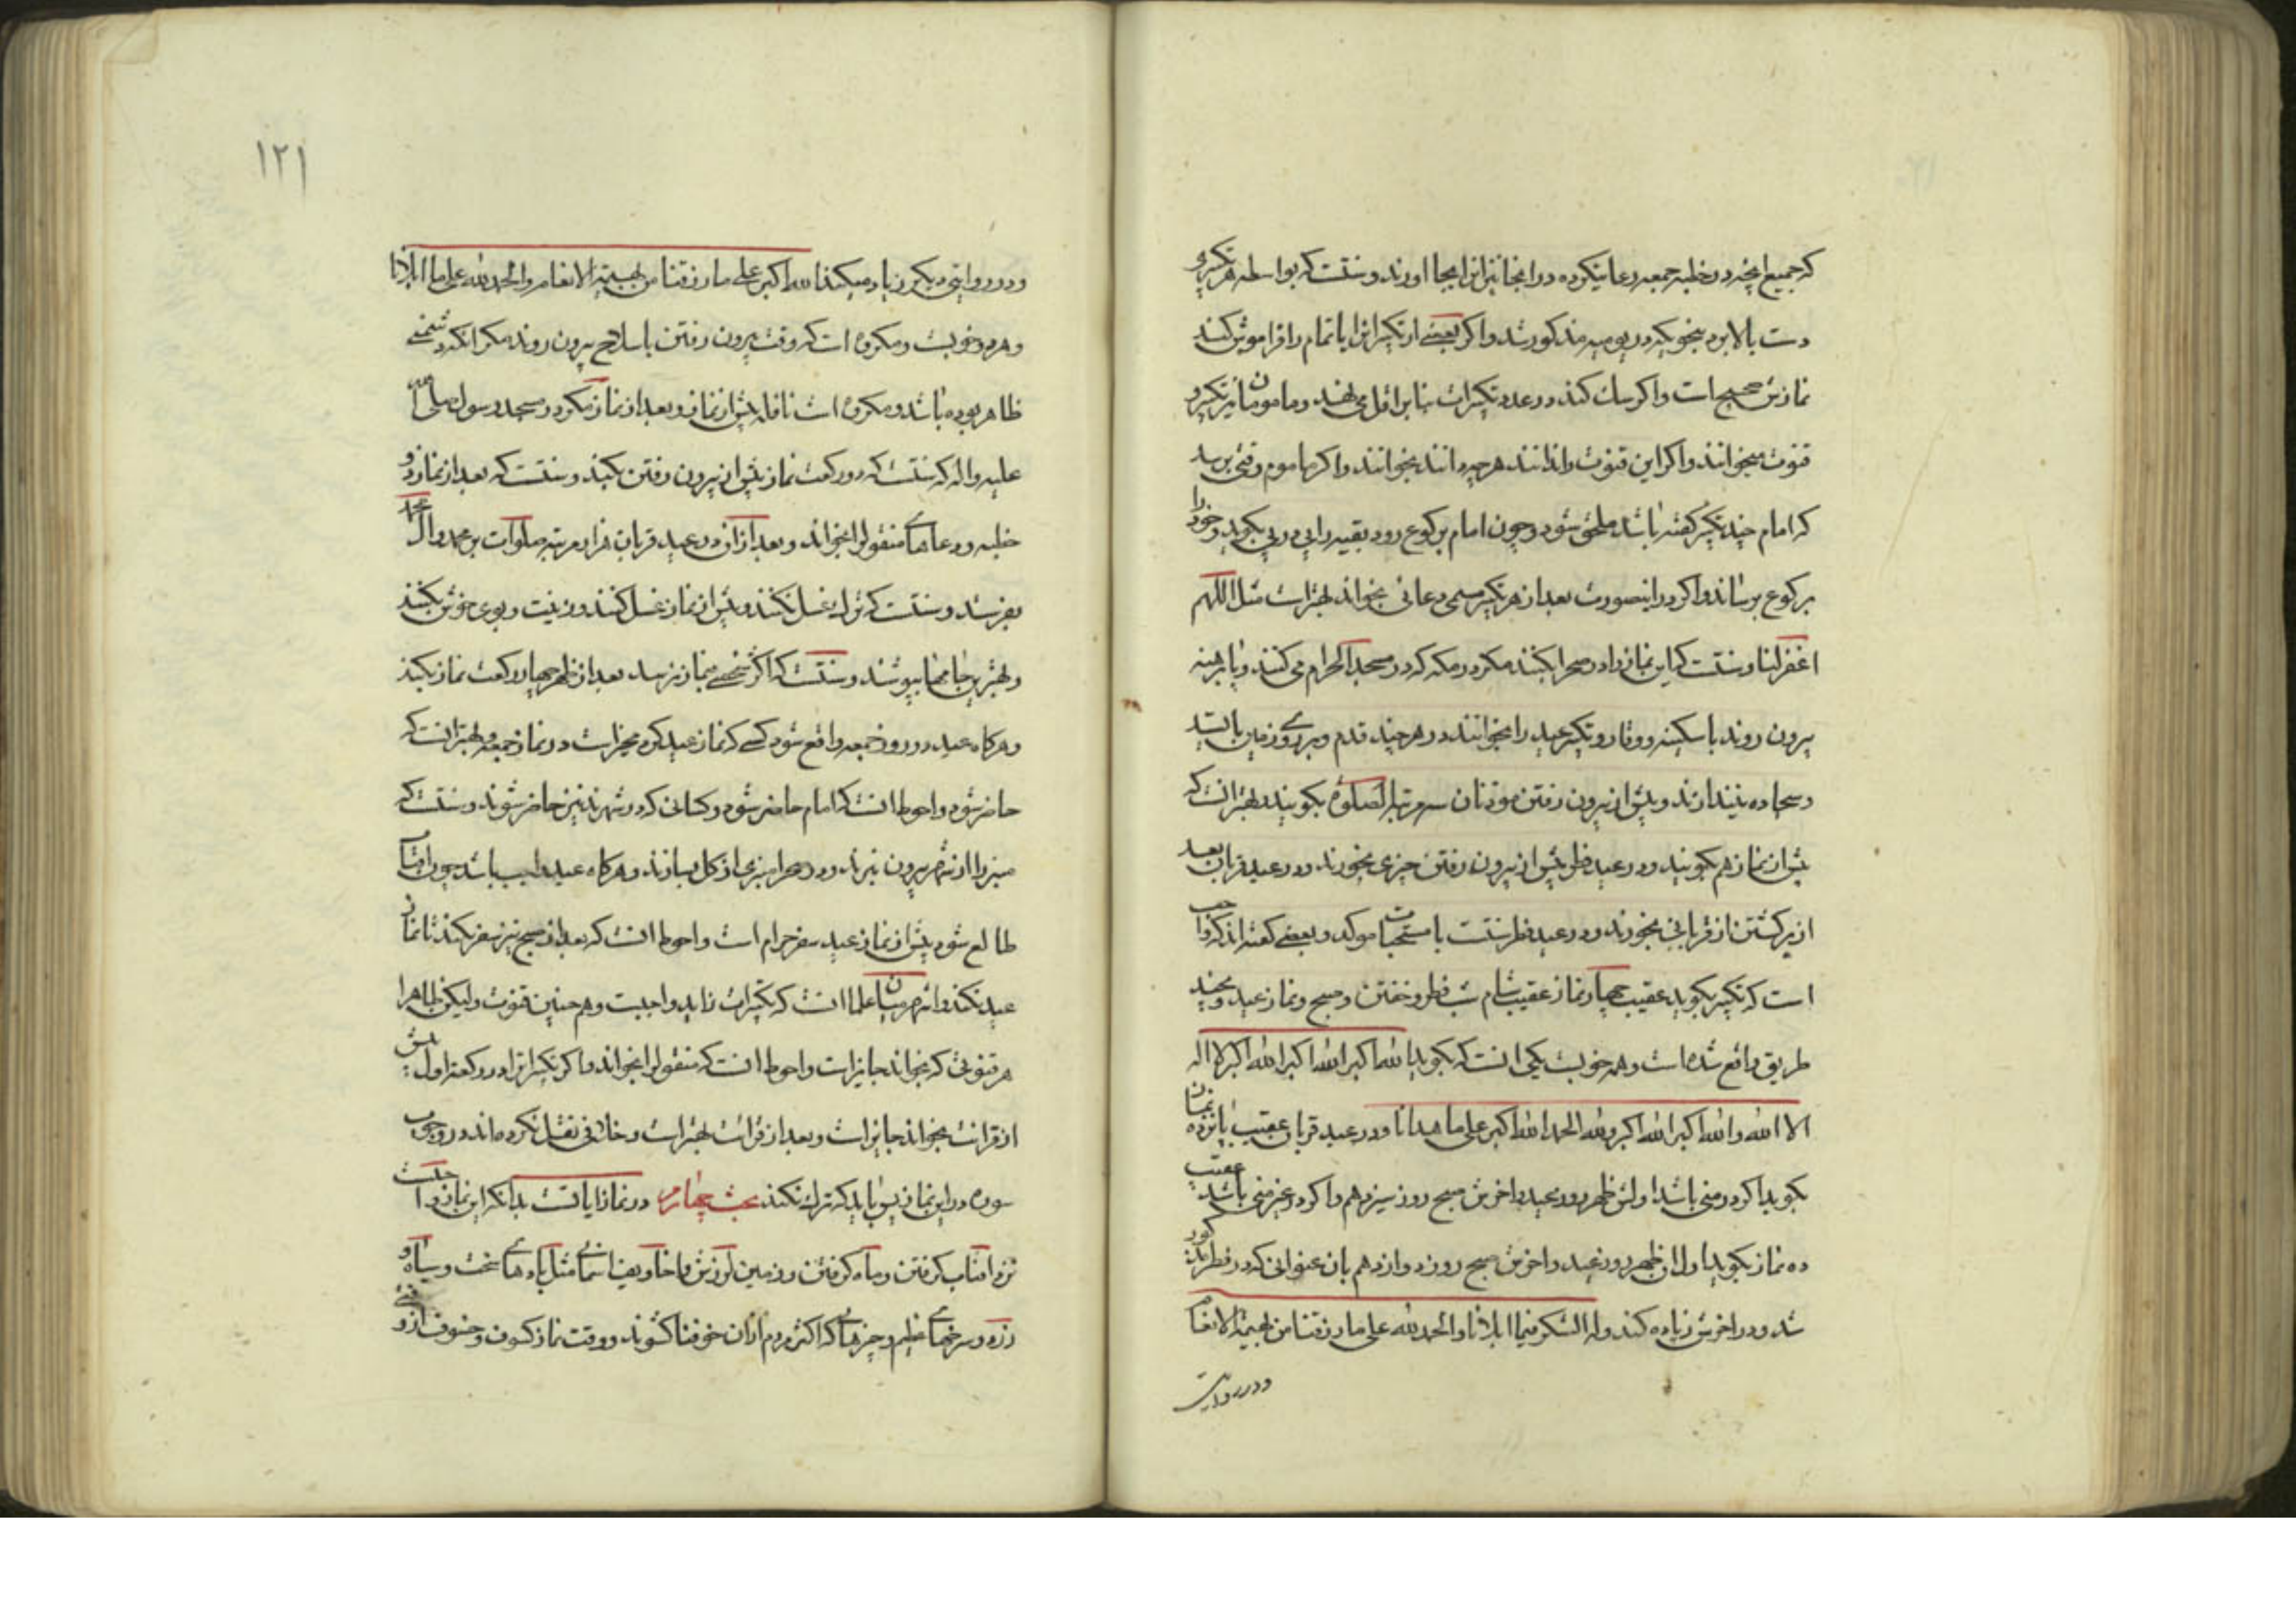 که جمیع آنچه در خطبه جمعه دعا میکرده در اینجا نیز انرا بجا اورند و سنتست که بواسطه هر تکبیری
دست بالا برد بنحویکه در یومیه مذکور شد و اکر بعضی از تکبیرانرا یا تمام را فراموش کند
نمازش صحیح است و اکر شک کند در عدد تکبیرات بنا بر اقل می نهد و مامومان نیز تکبیر و
قنوت میخوانند و اکر این قنوت را ندانند هر چه دانند بخوانند و اکر ماموم وقتی برسد
که امام چند تکبیر کفته باشد ملحق شود و چون امام برکوع رود بقیه را پی در پی بکوید و خود را
برکوع برساند و اکر در اینصورت بعد از هر تکبیر مسمی دعائی بخواند بهتر است مثل اللهم
اغفر لنا و سنتست که این نماز را در صحرا بکنند مکر در مکه که در مسجد الحرام می کنند و پا برهنه
بیرون روند با سکینه و وقار و تکبیر عید را بخوانند در هر چند قدم و بر روی زمین بایستد
و سجاده نیندازند و پیش از بیرون رفتن موذنان سه مرتبه الصلوة بکویند و بهتر انست که
پیش از نماز هم بکویند و در عید فطر پیش از بیرون رفتن چیزی بخورند و در عید قربان بعد
از برکشتن از قربانی بخورند و در عید فطر سنتست باستحباب موکد و بعضی کفته اند که واجب
است که تکبیر بکوید عقیب چهار نماز عقیب شام شب فطر و خفتن و صبح و نماز عید و بچند
طریق واقع شده است و همه خوبست یکی انست که بکوید الله اکبر الله اکبر الله اکبر لا اله
الا الله و الله اکبر الله اکبر و لله الحمد الله اکبر علی ما هدانا و در عید قربان عقیب پانزده نماز
بکوید اکر در منی باشد اولش ظهر روز عید و اخرش صبح روز سیزدهم و اکر در غیر منی باشد عقیب
ده نماز بکوید اول ان ظهر روز عید و اخرش صبح روز دوازدهم بان عنوانی که در فطر مذکور
شد و در اخرش زیاده کند و له الشکر فیما ابلانا و الحمد لله علی ما رزقنا من بهیمة الانعام
و در روایت
۱۲۱
و در روایتی دیکر زیاد میکند الله اکبر علی ما رزقنا من بهیمة الانعام و الحمد لله علی ما ابلانا
و هر دو خوبست و مکروه است که وقت بیرون رفتن با سلاح بیرون روند مکر انکه دشمنی
ظاهر بوده باشد و مکروه است نافله پیش از نماز و بعد از نماز مکر در مسجد رسول صلی الله
علیه و اله که سنتست که دو رکعت نماز پیش از بیرون رفتن بکنید و سنتست که بعد از نماز دو
خطبه و دعاهای منقول را بخواند و بعد از ان در عید قربان هزار مرتبه صلوات بر محمد و ال محمد
بفرستد و سنتست که ترک غسل نکنند و پیش از نماز غسل کنند و زینت و بوی خوش بکنند
و بهترین جامها بپوشند و سنتست که اکر شخصی بنماز نرسد بعد از ظهر چهار رکعت نماز بکند
و هرکاه عید در روز جمعه واقع شود کسی که نماز عید کرد مخیر است در نماز جمعه و بهتر انست که
حاضر شود و احوط انست که امام حاضر شود و کسانی که در شهرند نیز حاضر شوند و سنتست که
منبر را از شهر بیرون نبرند و در صحرا منبری از کل بسازند و هرکاه عید باشد چون افتاب
طالع شود پیش از نماز عید سفر حرام است و احوط انست که بعد از صبح نیز سفر نکند تا نماز
عید نکند و اشهر میان علما انست که تکبیرات زاید واجبست و هم چنین قنوت و لیکن ظاهرا
هر قنوتی که بخواند جایز است و احوط انست که منقول را بخواند و اکر تکبیرانرا در رکعت اول پیش
از قرائت بخواند جایز است و بعد از قرائت بهتر است و خلافی نقل نکرده اند در وجوب
سوره در این نماز پس باید که ترک نکند بحث چهارم در نماز ایاتست بدانکه این نماز واجبست
نزد افتاب کرفتن و ماه کرفتن و زمین لرزش و اخاویف اسمانی مثل بادهای سخت و سیاه و
زرد و سرخیهای عظیم و چیزهای که اکثر مردم از ان خوفناک شوند و وقت نماز کسوف و خسوف از وقتی